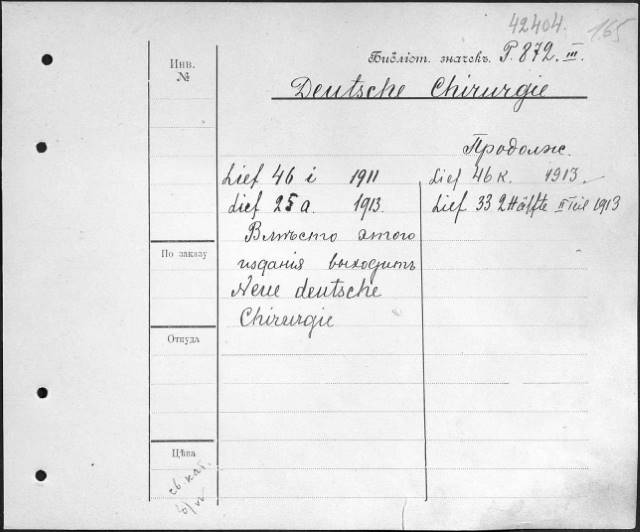 42404. 165
Библіот. значекъ. P. 872. III.
Deutsche Chirurgie
Инв.
№
Продолж.
Lief 46 i 1911
Lief 25 a. 1913.
Вмѣсто этого
изданія выходитъ
Neue deutsche
Chirurgie
Lief 46 k. 1913.
Lief 33 2 Hälfte II Teil 1913
По заказу
Откуда
Цѣна
св. кат.